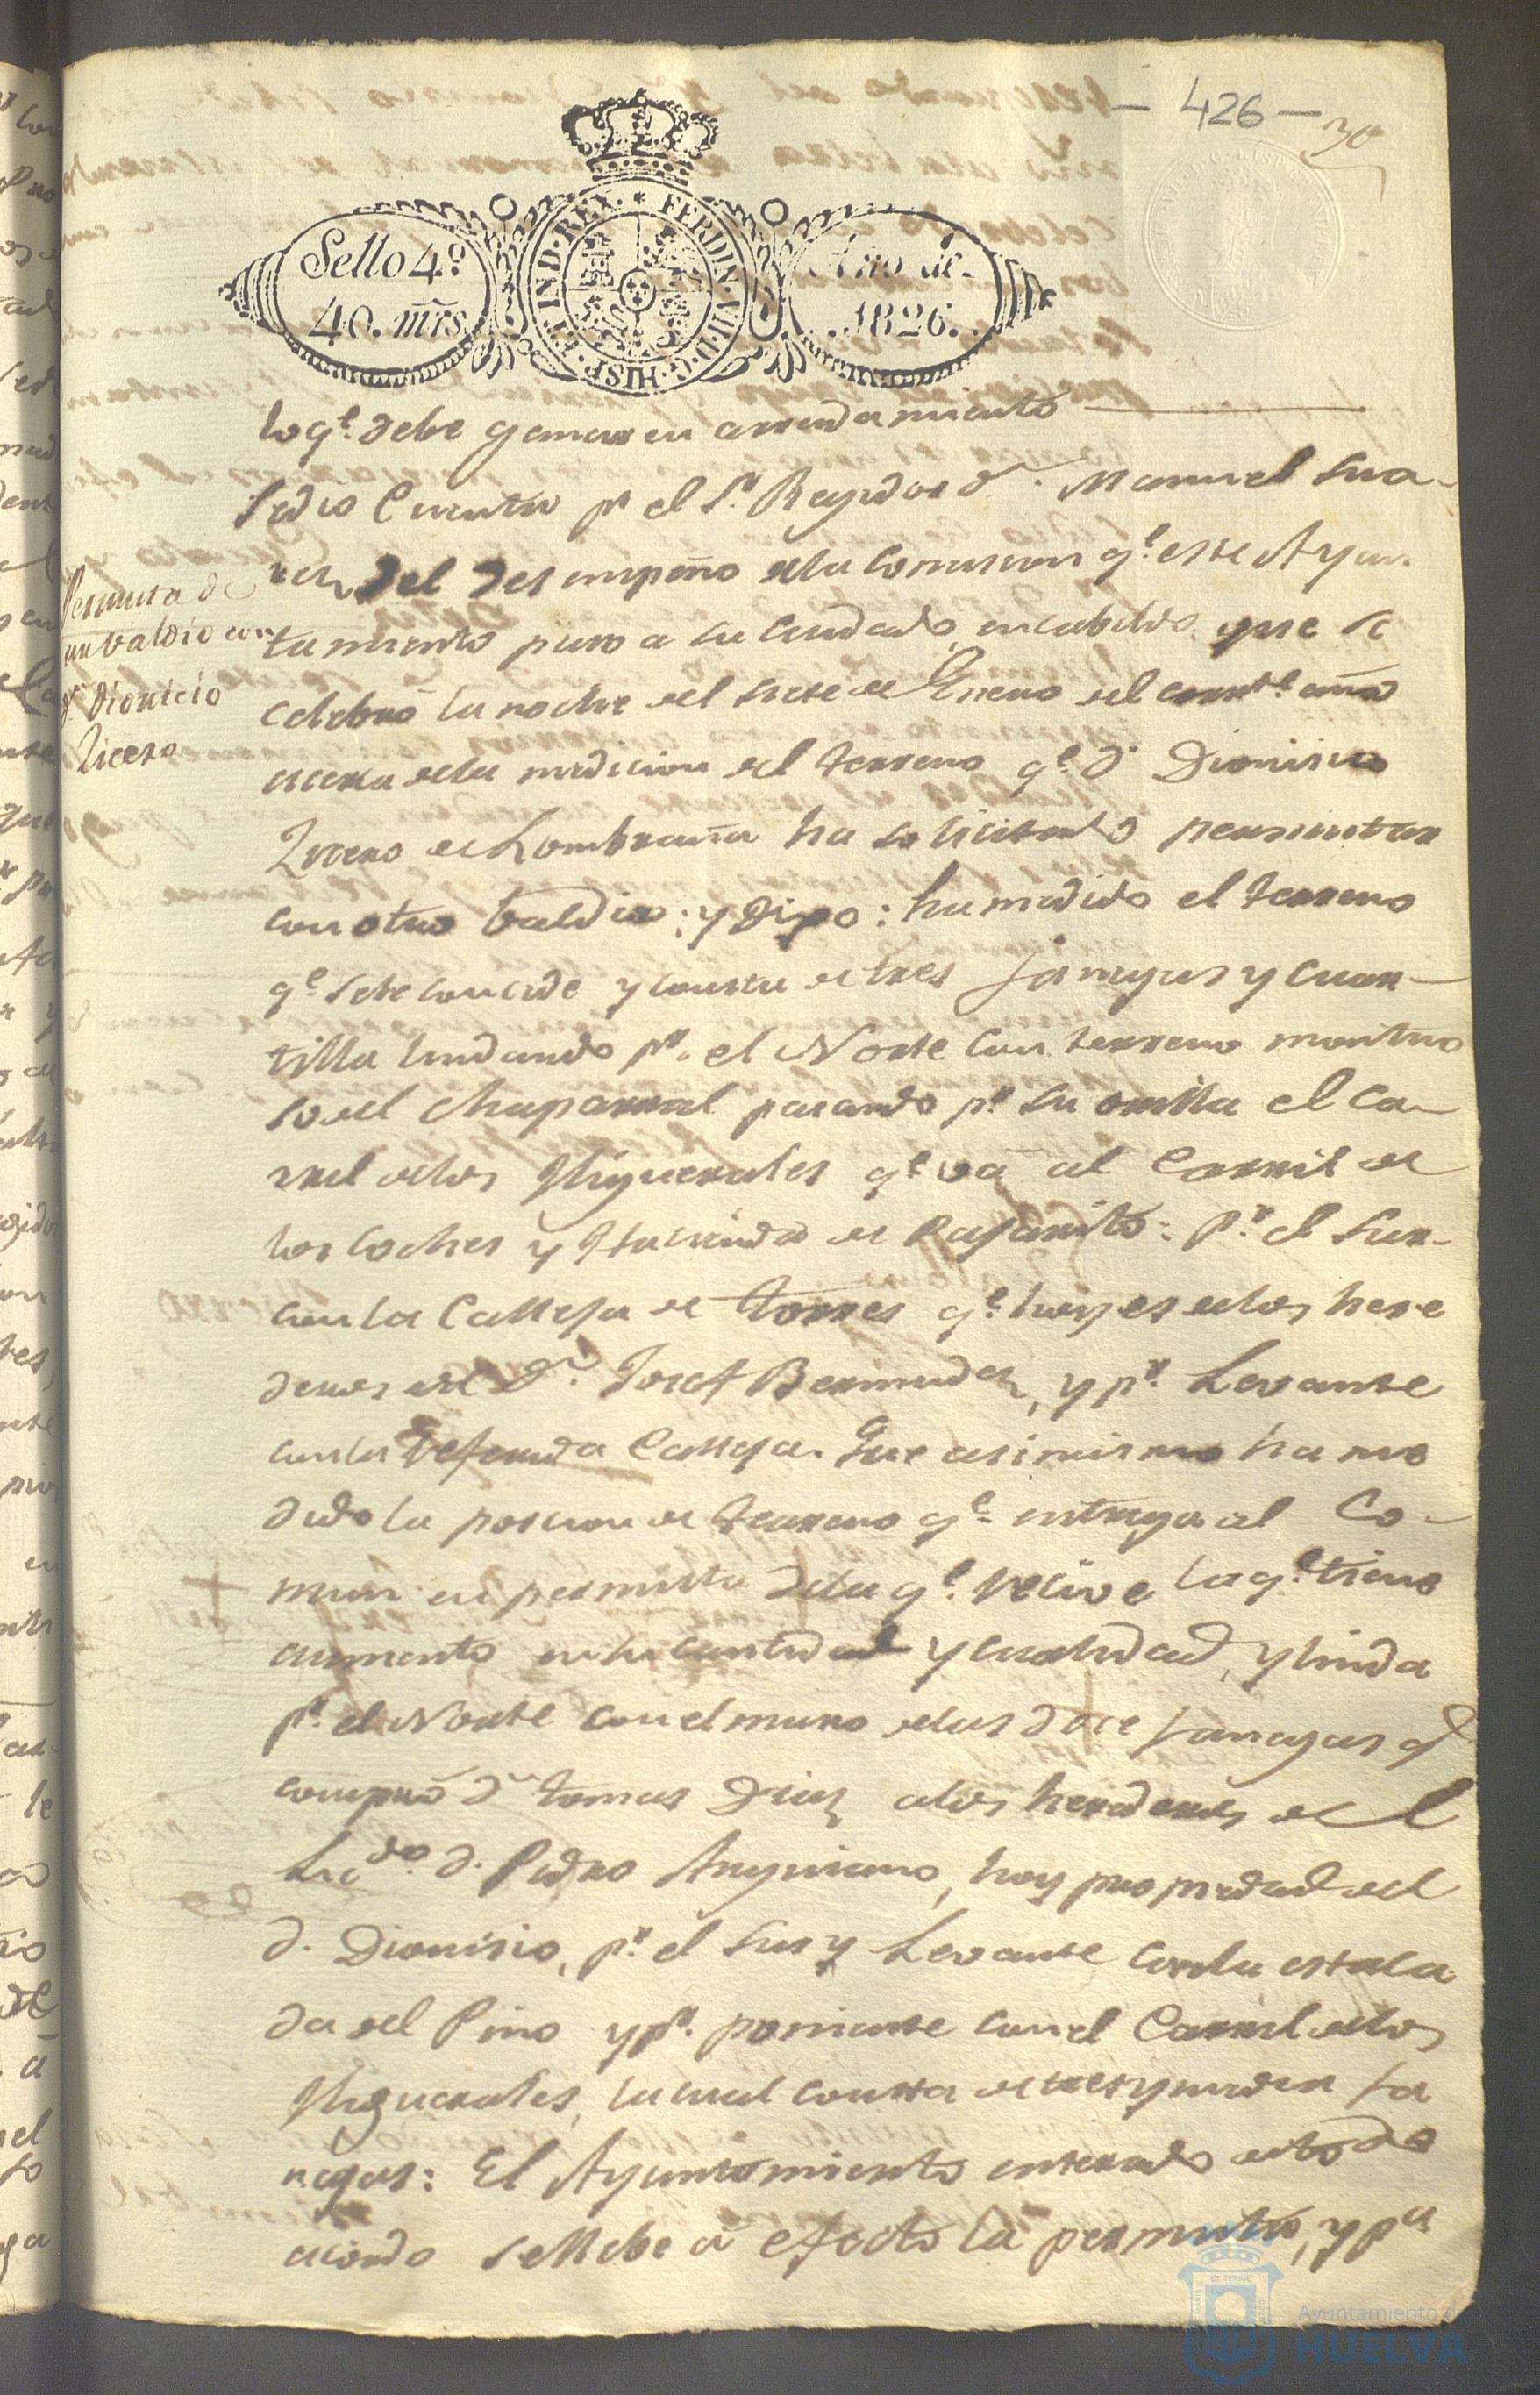 - 426 -
30
Sello 4º.
40. mrs
HISP. ET IND. REX. * FERDIN. VII. D. G.
Año de
1826.
lo qe. debe ganar en arrendamiento
Se dio Cuenta pr el Sr. Regidor Dn. Manuel Sua-
rez del desempeño de la Comision qe. este Ayun
tamiento puso a su cuidado en cabildo que se
celebró la noche del siete de Enero del corrte. año
acerca de la medicion del terreno qe. Dn. Dionisio
Ticero de Lombraña ha solicitado permutar
con otro baldio; y dijo: ha medido el terreno
qe. se le concede y consta de tres fanegas y cuar-
tilla lindando pr. el Norte con terreno montuo
so del Chaparral pasando pr. su orilla el Ca-
rril de los Higuerales qe. vá al Carril de
los Coches y Hacienda de Rafanito: pr. el Sur-
con la Calleja de Torres qe. hoy es de los here
deros del Dn. Josef Bermudez, y pr. Levante
con la referida Calleja. Que asimismo ha me
dido la porcion de terreno qe. entrega al Co-
mun en permuta de la qe. recive la qe. tiene
aumento en la cantidad y cualidad, y linda
pr. el Norte con el muro de las doce fanegas qe
compró Dn tomas Diaz a los herederos de el
Licdo. D. Pedro Anguiano, hoy propiedad del
D. Dionisio, pr. el Sur y Levante con la estaca
da del Pino y pr. poniente con el Carril de los
Higuerales, la cual consta de tres y media fa
negas: El Ayuntamiento enterado de todo
acordó se llebe á efecto la permuta, y pa.
Permuta de
un baldio con
Dn. Dionicio
Ticero
Ayuntamiento
HUELVA